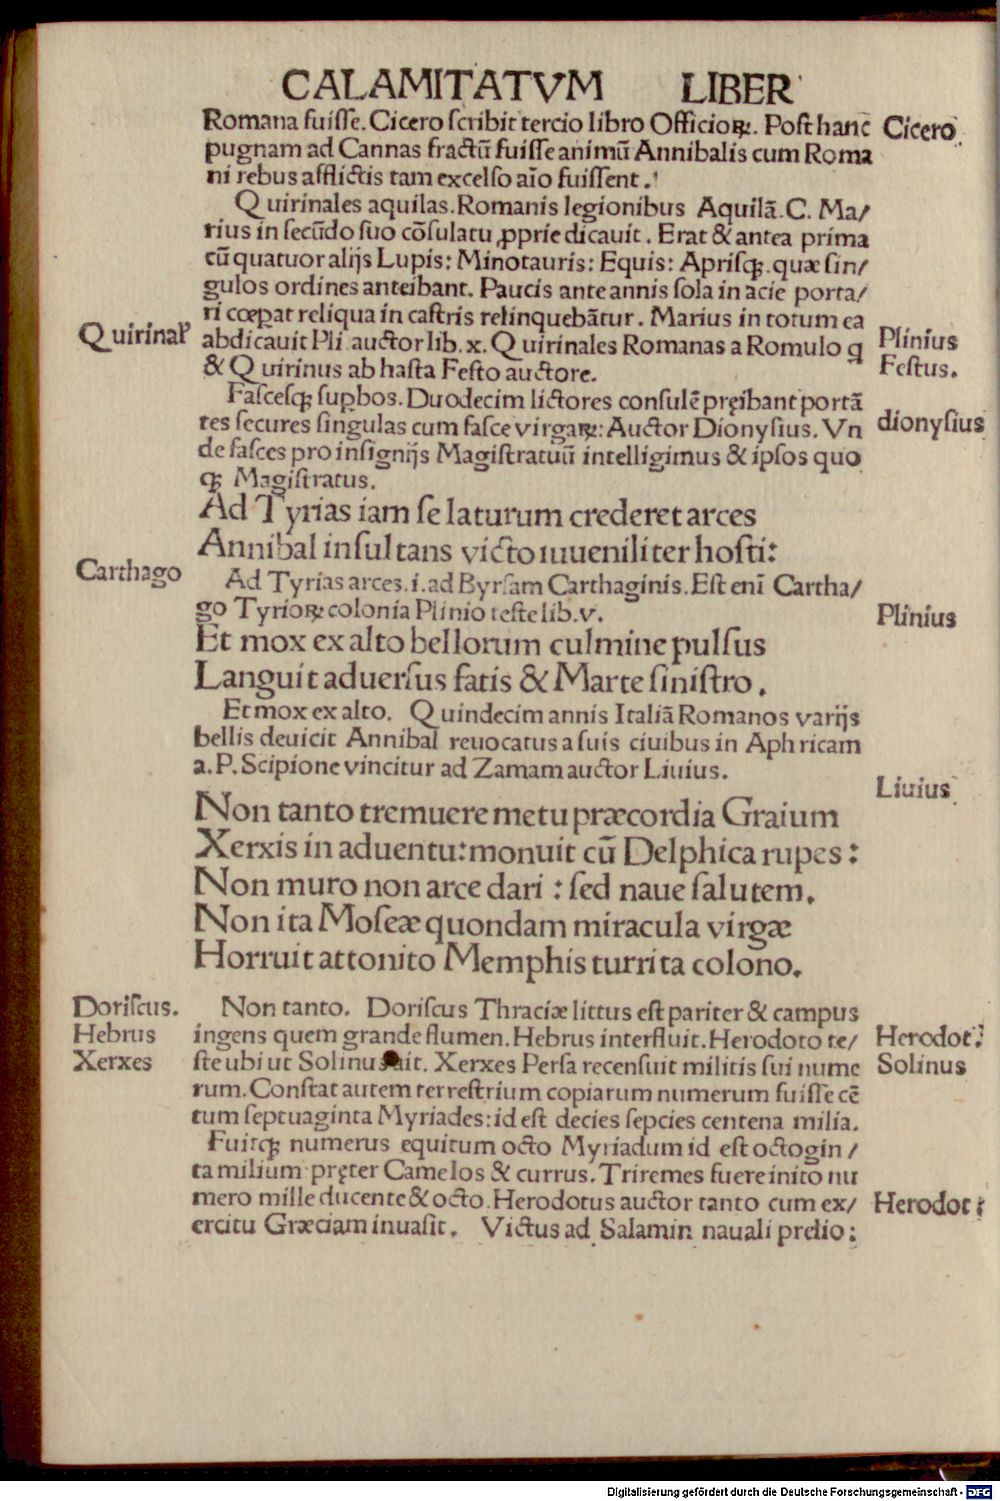 CALAMITATVM LIBER
Romana fuiſſe. Cicero ſcribit tercio libro Officioꝝ. Poſt hanc̄
pugnam ad Cannas fractū fuiſſe animū Annibalis cum Roma
ni rebus afflictis tam excelſo aīo fuiſſent.
Cicero.
Quirinales aquilas. Romanis legionibus Aquilā. C. Ma/
rius in ſecūdo ſuo cōſulatu ꝓprie dicauit. Erat & antea prima
cū quatuor alijs Lupis: Minotauris: Equis: Apriſqꝫ. quæ ſin/
gulos ordines anteibant. Paucis ante annis ſola in acie porta/
ri cœpat reliqua in caſtris relinquebātur. Marius in totum ea
abdicauit Pli auctor lib. x. Quirinales Romanas a Romulo q
& Quirinus ab haſta Feſto auctore.
Quirinal
Plinius
Feſtus.
Faſceſqꝫ ſuꝑbos. Duodecim lictores conſulē pręibant portā
tes ſecures ſingulas cum faſce virgaꝝ: Auctor Dionyſius. Vn
de faſces pro inſignijs Magiſtratuū intelligimus & ipſos quo
qꝫ Magiſtratus.
dionyſius
Ad Tyrias iam ſe laturum crederet arces
Annibal inſultans victo iuueniliter hoſti:
Ad Tyrias arces .i. ad Byrſam Carthaginis. Eſt enī Cartha/
go Tyrioꝝ colonia Plinio teſte lib. v.
Carthago
Plinius
Et mox ex alto bellorum culmine pulſus
Languit aduerſus fatis & Marte ſiniſtro.
Et mox ex alto. Quindecim annis Italiā Romanos varijs
bellis deuicit Annibal reuocatus a ſuis ciuibus in Aphricam
a. P. Scipione vincitur ad Zamam auctor Liuius.
Liuius
Non tanto tremuere metu præcordia Graium
Xerxis in aduentu: monuit cū Delphica rupes:
Non muro non arce dari: ſed naue ſalutem.
Non ita Moſeæ quondam miracula virgæ
Horruit attonito Memphis turrita colono.
Non tanto. Doriſcus Thraciæ littus eſt pariter & campus
ingens quem grande flumen. Hebrus interfluit. Herodoto te/
ſte ubi ut Solinus ait. Xerxes Perſa recenſuit militis ſui nume
rum. Conſtat autem terreſtrium copiarum numerum fuiſſe cē
tum ſeptuaginta Myriades: id eſt decies ſepcies centena milia.
Doriſcus.
Hebrus
Xerxes
Herodot
Solinus
Fuitqꝫ numerus equitum octo Myriadum id eſt octogin/
ta milium pręter Camelos & currus. Triremes fuere inito nu
mero mille ducente & octo. Herodotus auctor tanto cum ex/
ercitu Græciam inuaſit. Victus ad Salamin nauali prelio:
Herodot
Digitalisierung gefördert durch die Deutsche Forschungsgemeinschaft - DFG